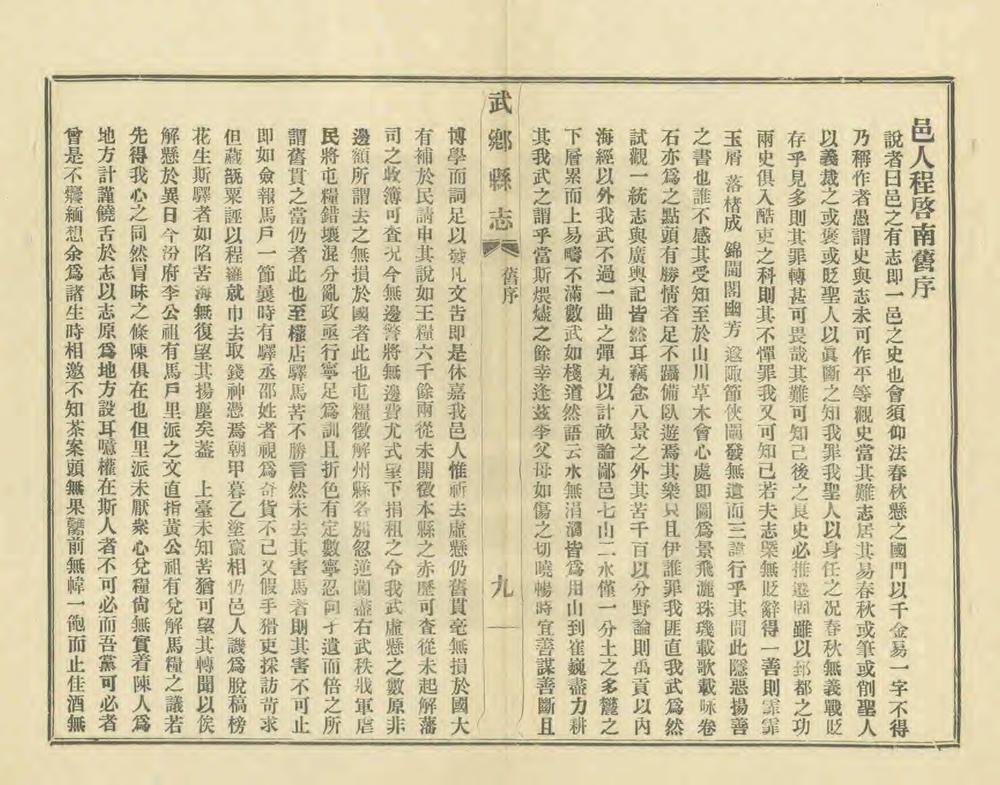 邑人程啓南舊序
說者曰邑之有志即一邑之史也會須仰法春秋懸之國門以千金易一字不得
乃稱作者愚謂史與志未可作平等觀史當其難志居其易春秋或筆或削聖人
以義裁之或褒或貶聖人以眞斷之知我罪我聖人以身任之况春秋無義戰貶
存乎見多則其罪轉甚可畏哉其難可知已後之良史必推遷固雖以郅都之功
兩史俱入酷吏之科則其不憚罪我又可知已若夫志槩無貶辭得一善則霏霏
玉屑 落楮成 錦閫閣幽芳 遐陬節俠闡發無遺而三諱行乎其間此隱惡揚善
之書也誰不感其受知至於山川草木會心處即圖爲景飛灑珠璣載歌載咏卷
石亦爲之點頭有勝情者足不躡備臥遊焉其樂只且伊誰罪我匪直我武爲然
試觀一統志與廣輿記皆然耳竊念八景之外其苦千百以分野論則禹貢以內
海經以外我武不過一曲之彈丸以計畝論鄙邑七山二水僅一分土之多鸞之
下層累而上易疇不滿數武如棧道然語云水無涓滴皆爲用山到崔巍盡力耕
其我武之謂乎當斯煨燼之餘幸逢茲李父母如傷之切曉暢時宜善謀善斷且
武鄉縣志 舊序 九
博學而詞足以發凡文告即是休嘉我邑人惟祈去虛懸仍舊貫毫無損於國大
有補於民請申其說如王糧六千餘兩從未開徵本縣之赤歷可查從未起解藩
司之收簿可查况今無邊警將無邊費尤式望下捐租之令我武虛懸之數原非
邊額所謂去之無損於國者此也屯糧徵解州縣各別忽逆闖盡右武秩戕軍虐
民將屯糧錯壤混分亂政亟行寧足爲訓且折色有定數寧忍同孑遺而倍之所
謂舊貫之當仍者此也至權店驛馬苦不勝言然未去其害馬者則其害不可止
即如僉報馬戶一節曩時有驛丞邵姓者視爲奇貨不已又假手猾吏採訪苛求
但藏甔粟誣以程羅就市去取錢神憑焉朝甲暮乙塗竄相仍邑人譏爲脫稿榜
花生斯驛者如陷苦海無復望其揚塵矣葢 上臺未知苦猶可望其轉聞以俟
解懸於異日今汾府李公祖有馬戶里派之文直指黃公祖有兌解馬糧之議若
先得我心之同然冒昧之條陳俱在也但里派未厭衆心兌糧尙無實着陳人爲
地方計謹饒舌於志以志原爲地方設耳噫權在斯人者不可必而吾黨可必者
曾是不癢緬想余爲諸生時相邀不知茶案頭無果罇前無幃一飽而止佳酒無